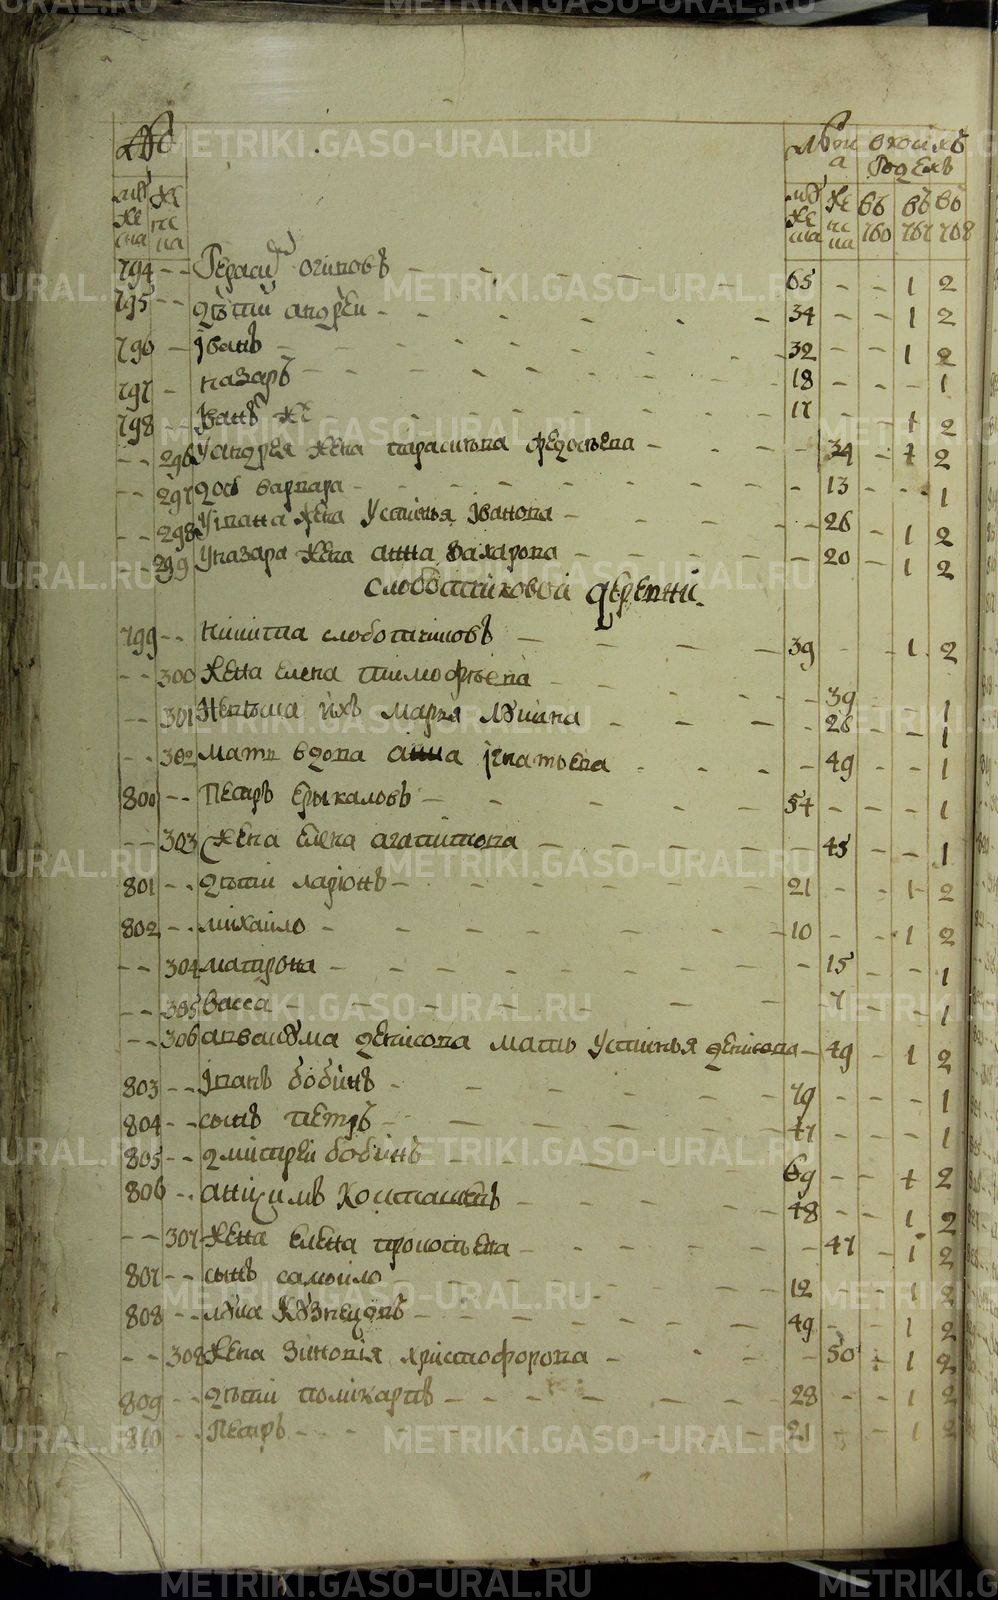 METRIKI.GASO-URAL.RU
№ лѣта в коихъ годехъ
мужеска женска мужеска женска въ 760 въ 767 въ 768
794 - - Герасим огиповъ - - 65 - - 1 2
795 - - дѣти андрѣи - - 34 - - 1 2
796 - - Iванъ - - 32 - - 1 2
797 - назаръ - - 18 - - - 1
798 - - Iванъ же - - 17 - - 1 2
- - 296 У андрея жена параскева федосѣева - - 34 - 1 2
- - 297 дочь варвара - - 13 - - - 1
- - 298 У ивана жена Устинья Iванова - - 26 - 1 2
- - 299 У назара жена анна захарова - - 20 - 1 2
слоботчиковой дѣревни
799 - - никита слоботчиковъ - - 39 - 1 2
- - 300 жена елена тимофѣева - - 39 - - 1
- - 301 ихъ марья - - 26 - - 1
- - 302 мать вдова анна iгнатьева - - 49 - - 1
800 - - Петръ ерыкаловъ - - 54 - - - 1
- - 303 жена елена агапитова - - 45 - - 1
801 - - дѣти ларiонъ - - 21 - - 1 2
802 - - михаило - - 10 - - 1 2
- - 304 матрона - - 15 - - - 1
- - 305 васса - - 7 - - - 1
- - 306 денисова мать устинья денисова - 49 - 1 2
803 - - Iванъ бобинъ - - 79 - - - 1
804 - - сынъ петръ - - 47 - - - 1
805 - - дмитрѣи бобинъ - - 69 - - 1 2
806 - - анцимъ - - 48 - - 1 2
- - 307 жена елена прокопьева - - 47 - 1 2
807 - - сынъ самоило - - 12 - - 1 2
808 - - лука кузнецовъ - - 49 - - 1 2
- - 308 жена зиновiя христофорова - - 50 - 1 2
809 - - дѣти поликарпъ - - 28 - - 1 2
810 - - Петръ - - 21 - - 1 2